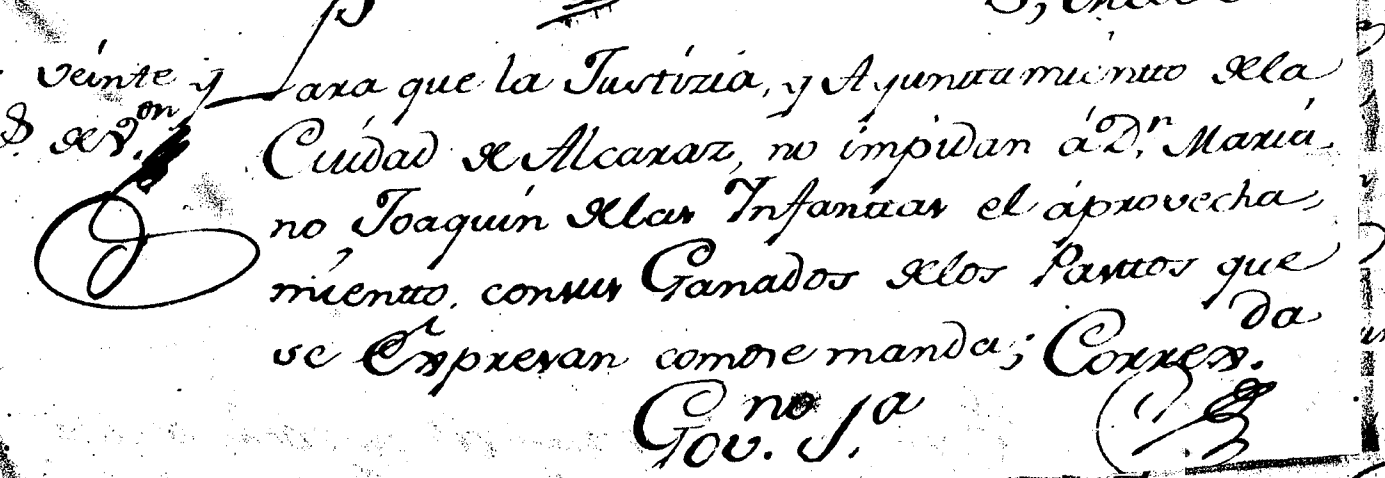 veinte y
Para que la Justizia, y Ayunttamientto dela
de V.on
Ciudad de Alcaraz, no impidan á D.n Maria
no Joaquin delas Infanttas el áprovecha
mientto, consus Ganados delos Pasttos que
se Expresan comose manda; Corregx.da
Gov.no S.a